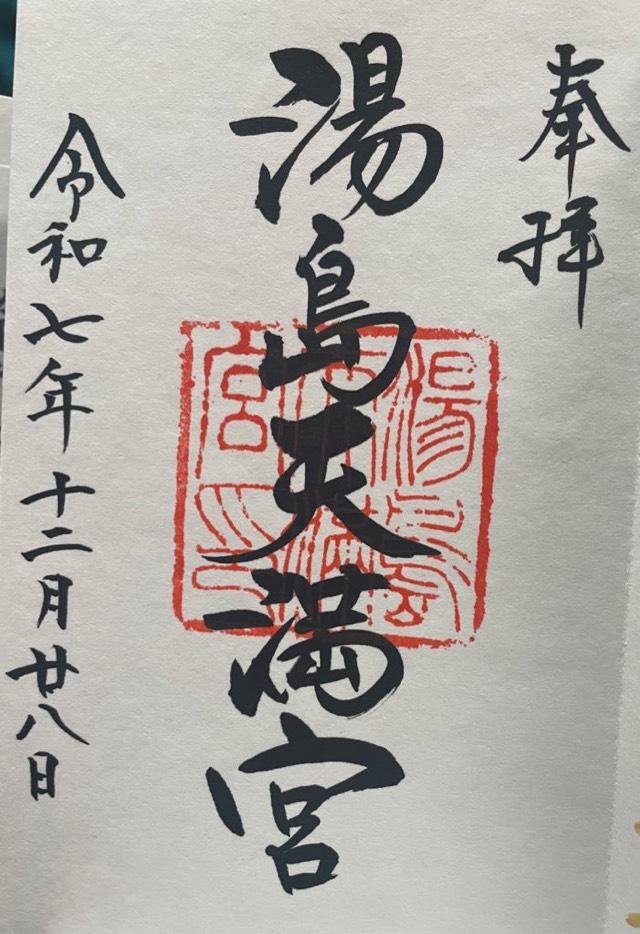 奉拝
湯島天満宮
湯島天満宮印
令和七年十二月廿八日